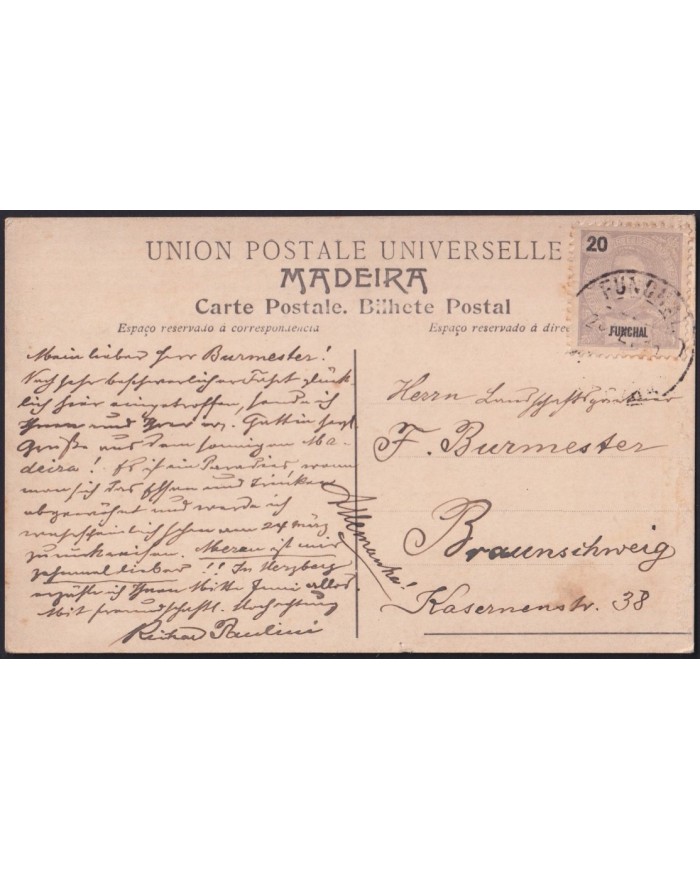 UNION POSTALE UNIVERSELLE
MADEIRA
Carte Postale. Bilhete Postal
Espaço reservado á correspondencia
Espaço reservado á direc
20
FUNCHAL
FUNCHAL
Mein lieber Herr Burmester!
Nach sehr beschwerlicher Fahrt glück-
lich hier eingetroffen, sende ich
Ihnen und Ihrer Gattin herzl.
Grüße aus dem sonnigen Ma-
deira! Es ist ein Paradies, wenn
man sich das Essen und Trinken
abgewöhnt und werde ich
wahrscheinlich schon am 24 März
zurückreisen. Meran ist mir
zehnmal lieber!! In Herzberg
erzähle ich Ihnen Mitte Juni alles.
Mit freundschaftl. Hochachtung
Richard Paulini
Allemanha!
Herrn Landschaftsgärtner
F. Burmester
Braunschweig
Kasernenstr. 38